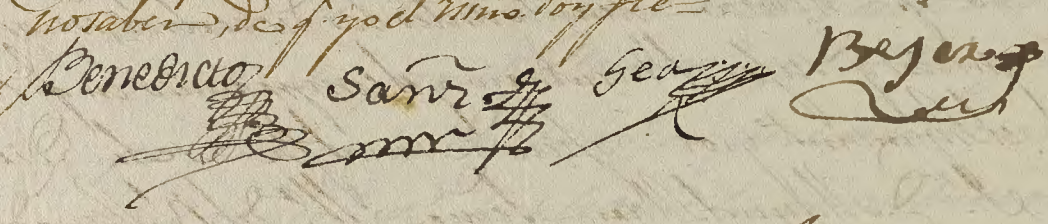 no saber, de q. yo el nmo. doy fee
Benedicto Sanz Gea Bejar